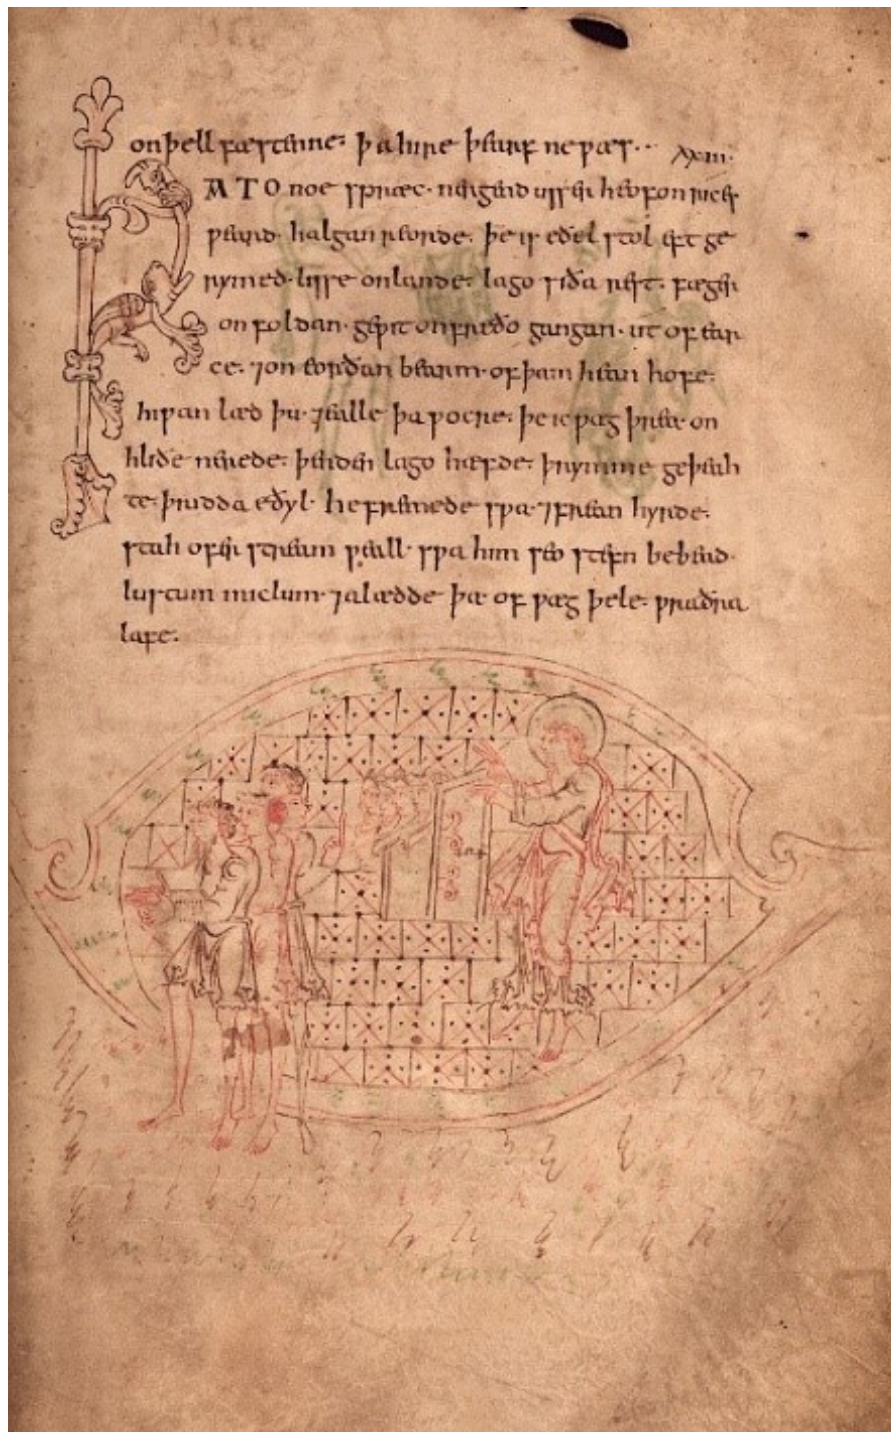 on þell fæstenne. þa hire þearf ne ƿæs·· xxiii·
ÞA TO noe spræc· nergend usser heofon rices
ƿeard· halgan reorde. þe is eðel stol eft ge
rymed· lisse on lande. lago siða rest· fæger
on foldan· geƿit on freðo gangan· ut of ear
ce. ⁊ on eorðan bearm· of þam hean hofe.
hiƿan læd þu· ⁊ ealle þa ƿocre. þe ic ƿæg þrea on
hliðe nerede. þenden lago hæfde. þrymme geþeah
te. þridda eðyl· he fremede sƿa· ⁊ frean hyrde.
stah ofer stream ƿeall· sƿa him seo stefn bebead·
lustum miclum· ⁊ alædde þa of ƿæg þele. ƿraðra
lafe.